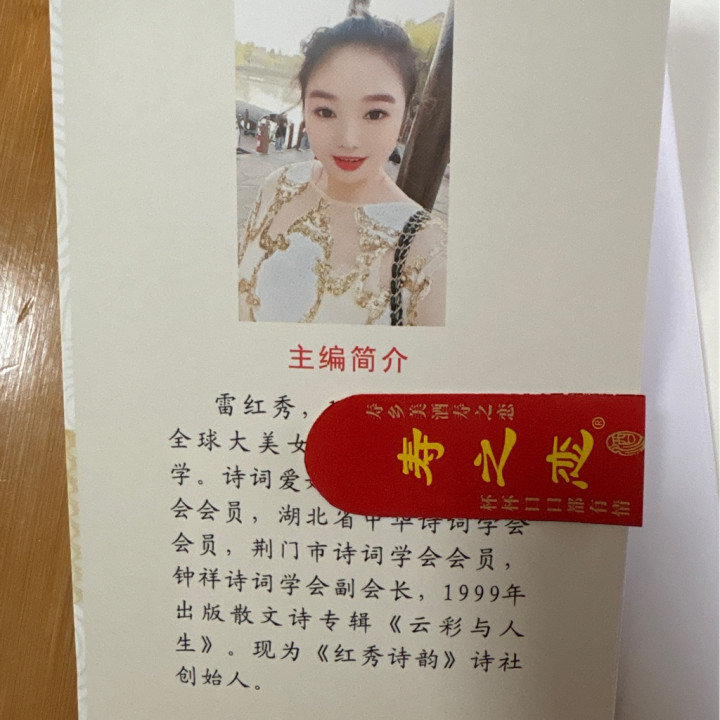 主编简介
雷红秀，
全球大美女
学。诗词爱
会会员，湖北省中华诗词学会
会员，荆门市诗词学会会员，
钟祥诗词学会副会长，1999年
出版散文诗专辑《云彩与人
生》。现为《红秀诗韵》诗社
创始人。
寿乡美酒寿之恋
寿之恋®
酒
杯杯口口都有情